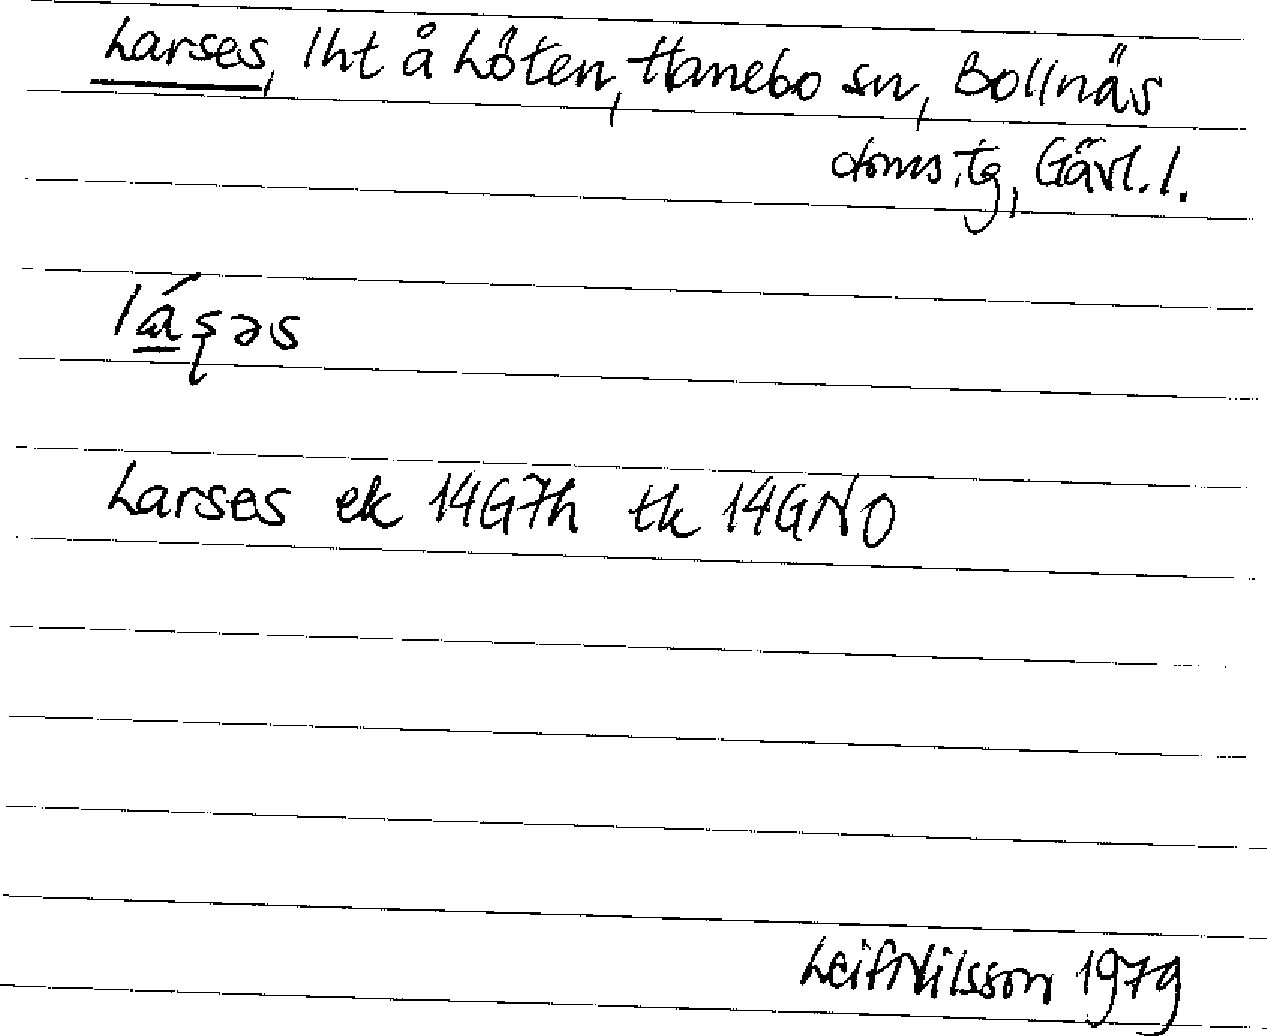 Larses, lht å Löten, Hanebo sn, Bollnäs
doms.tg, Gävl.l.
lá̲ʂəs
Larses ek 14G7h tk 14GNO
Leif Nilsson 1979